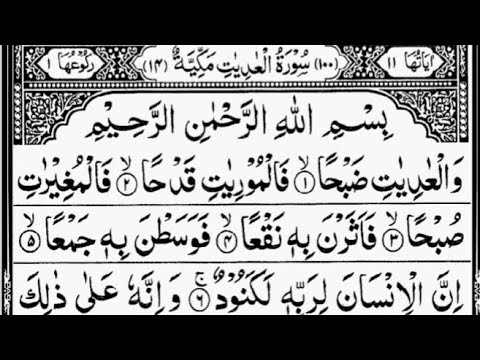 اٰیَاتُهَا ١١ (١٠٠) سُوْرَةُ الْعٰدِیٰتِ مَكِّیَّةٌ (١٤) رُكُوْعُهَا ١
بِسْمِ اللهِ الرَّحْمٰنِ الرَّحِیْمِ
وَالْعٰدِیٰتِ ضَبْحًا ۙ﴿١﴾ فَالْمُوْرِیٰتِ قَدْحًا ۙ﴿٢﴾ فَالْمُغِیْرٰتِ
صُبْحًا ۙ﴿٣﴾ فَاَثَرْنَ بِهٖ نَقْعًا ۙ﴿٤﴾ فَوَسَطْنَ بِهٖ جَمْعًا ۙ﴿٥﴾
اِنَّ الْاِنْسَانَ لِرَبِّهٖ لَكَنُوْدٌ ۚ﴿٦﴾ وَ اِنَّهٗ عَلٰى ذٰلِكَ